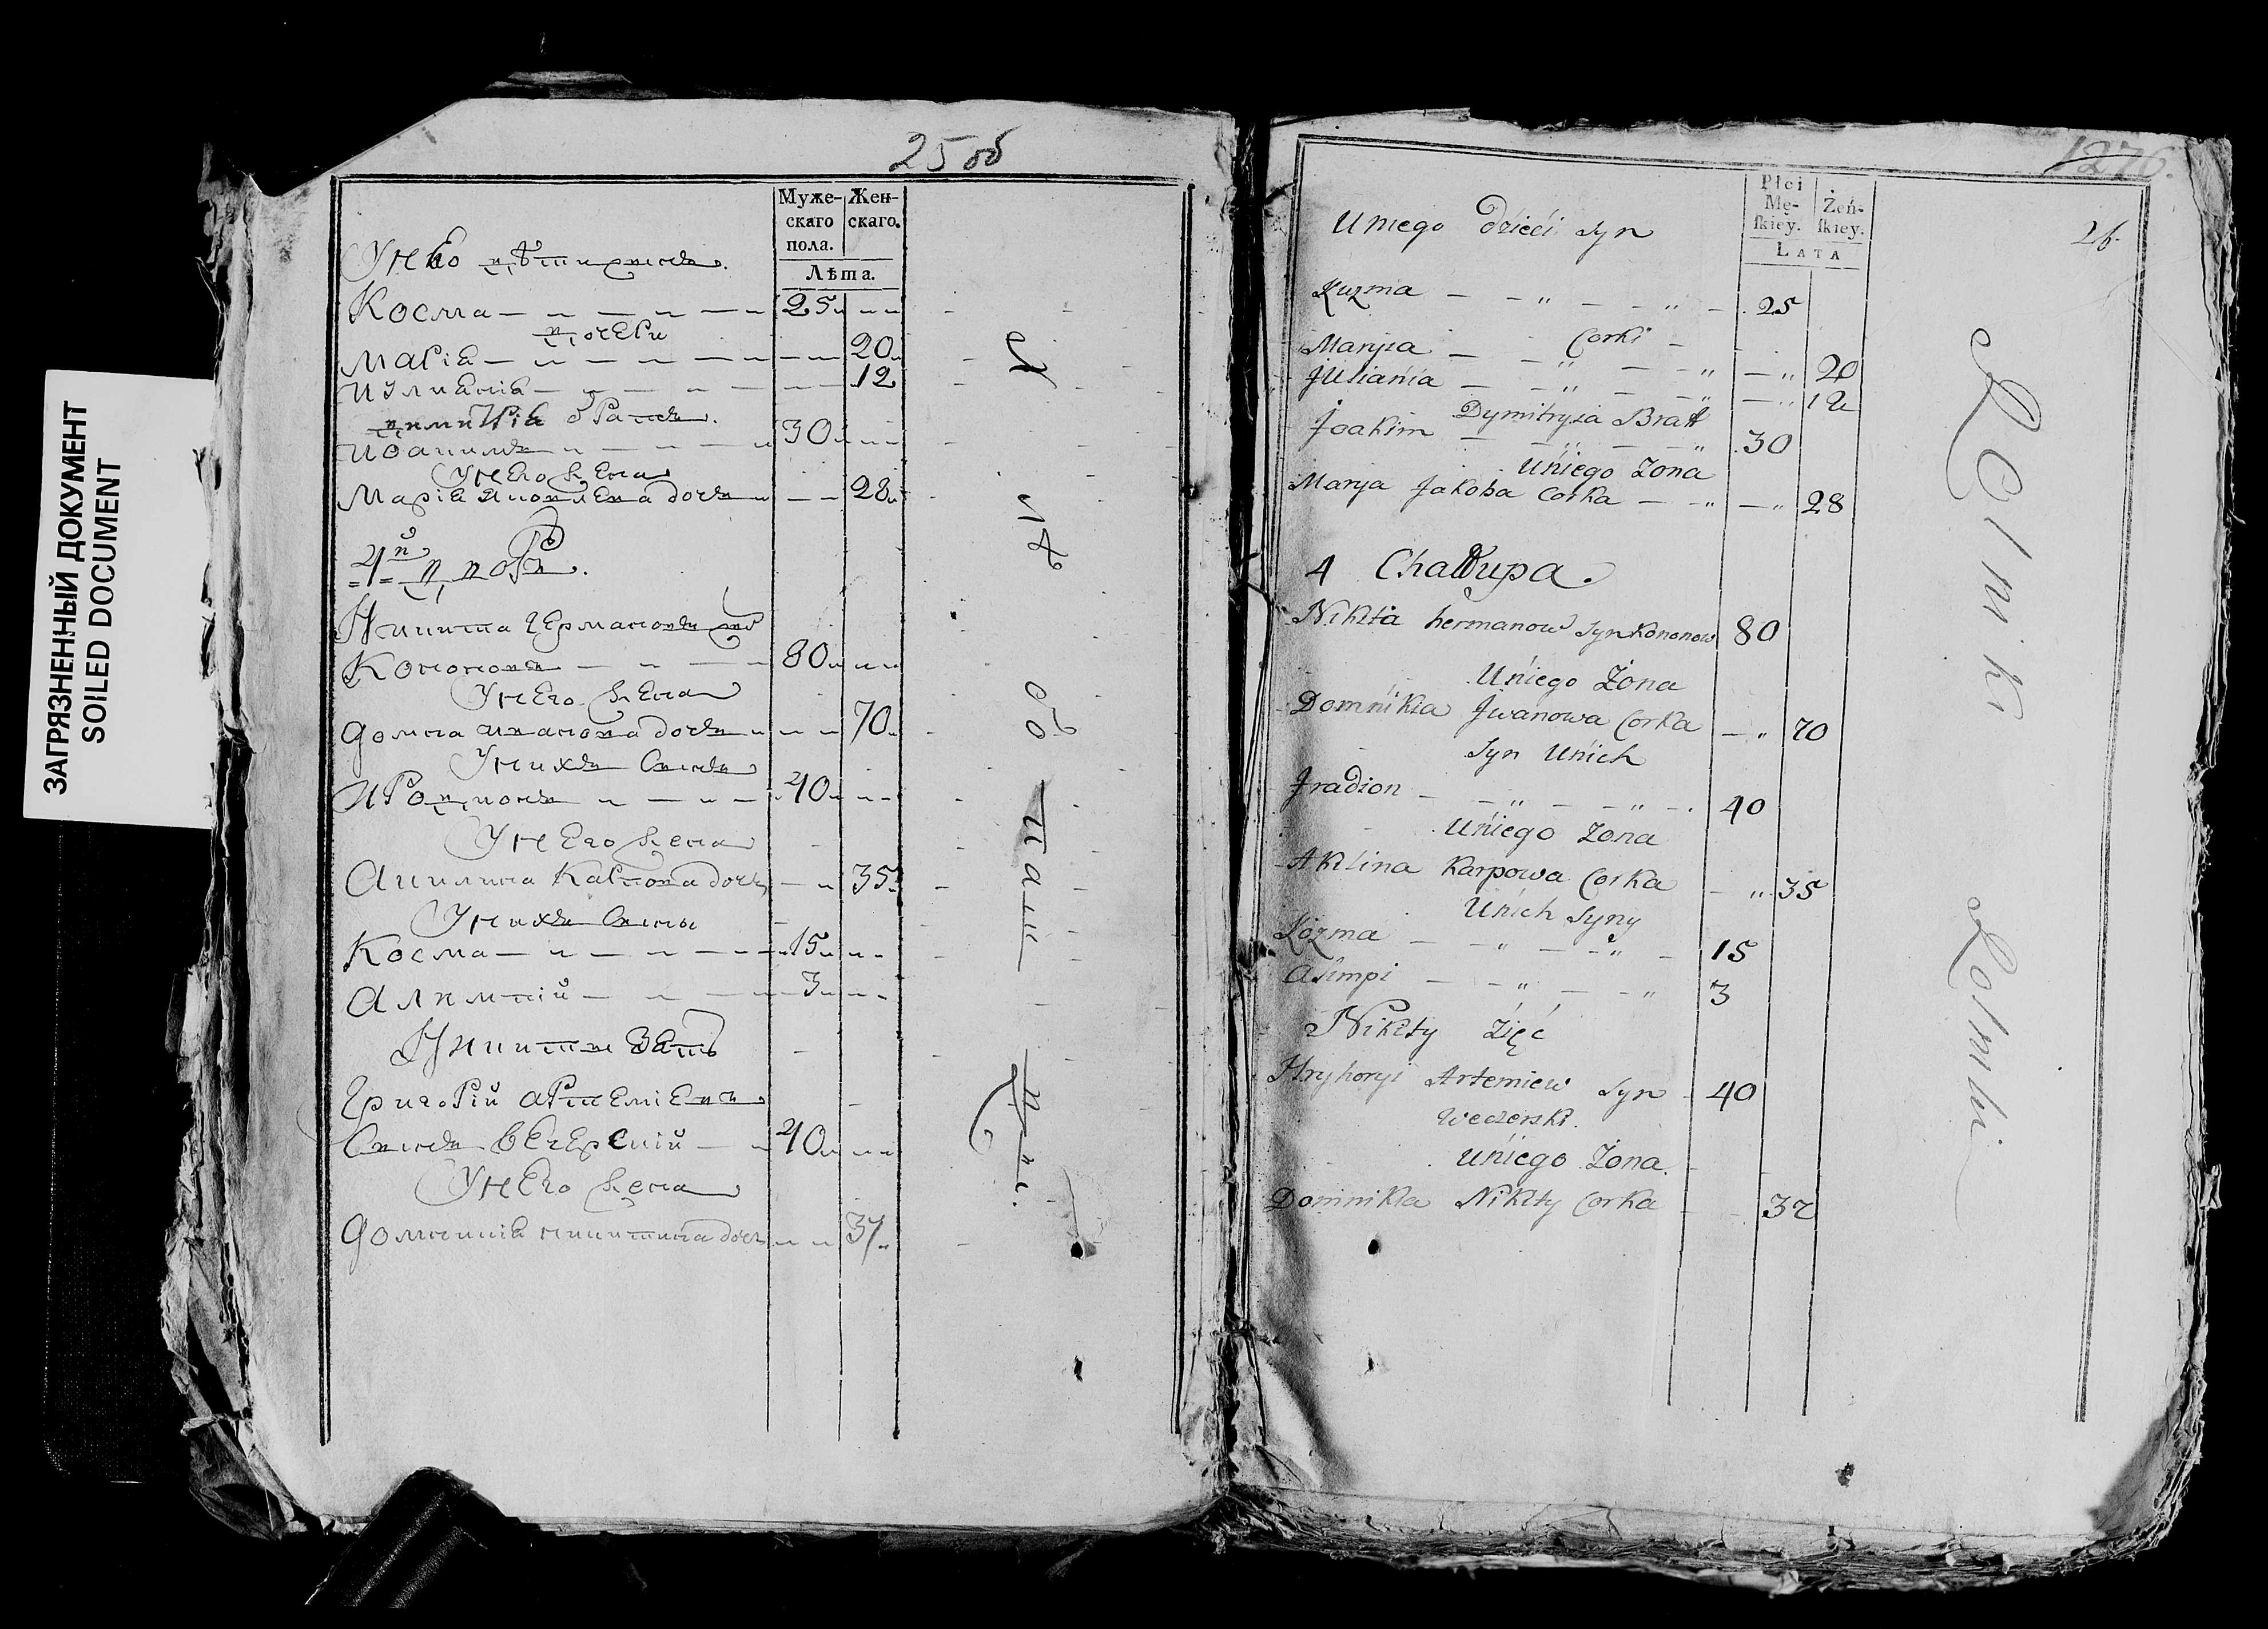 ЗАГРЯЗНЕННЫЙ ДОКУМЕНТ
SOILED DOCUMENT
25 об
Муже-скаго пола. Жен-скаго.
Лѣта.
У него дѣти сынъ
Косма 25
дочери
Марiа 20
Иулианiа 12
Димитрiа братъ
Иоакимъ 30
У него жена
Марiа Яковлева дочь 28
4й двор
Никита Германовъ сынъ
Кононовъ 80
У него жена
Домна Иванова дочь 70
У нихъ сынъ
Иродионъ 40
У него жена
Акилина Карпова дочь 35
У нихъ сыны
Косма 15
Алимпiй 3
Никиты зять
Григорiй Артемiевъ
сынъ Вечерскiй 40
У него жена
Домникiа Никитина дочь 37
1276.
26.
Płci Mę-skiey. Żeń-skiey.
LATA
U niego dzieci syn
Kuzma 25
Corki
Maryia 20
Juliania 12
Dymitryia Bratt
Joakim 30
U niego Zona
Marya Jakoba Corka 28
4 Chałłupa.
Nikita hermanow syn Kononow 80
U niego Żona
Domnikia Jwanowa Corka 70
Syn U nich
Jradion 40
U niego Zona
Akilina Karpowa Corka 35
U nich Syny
Kozma 15
Alimpi 3
Nikity Zięć
Hryhoryi Artemiew Syn 40
Weczerski.
U niego Żona.
Domnikia Nikity Corka 37
Rolniki
Rolniki